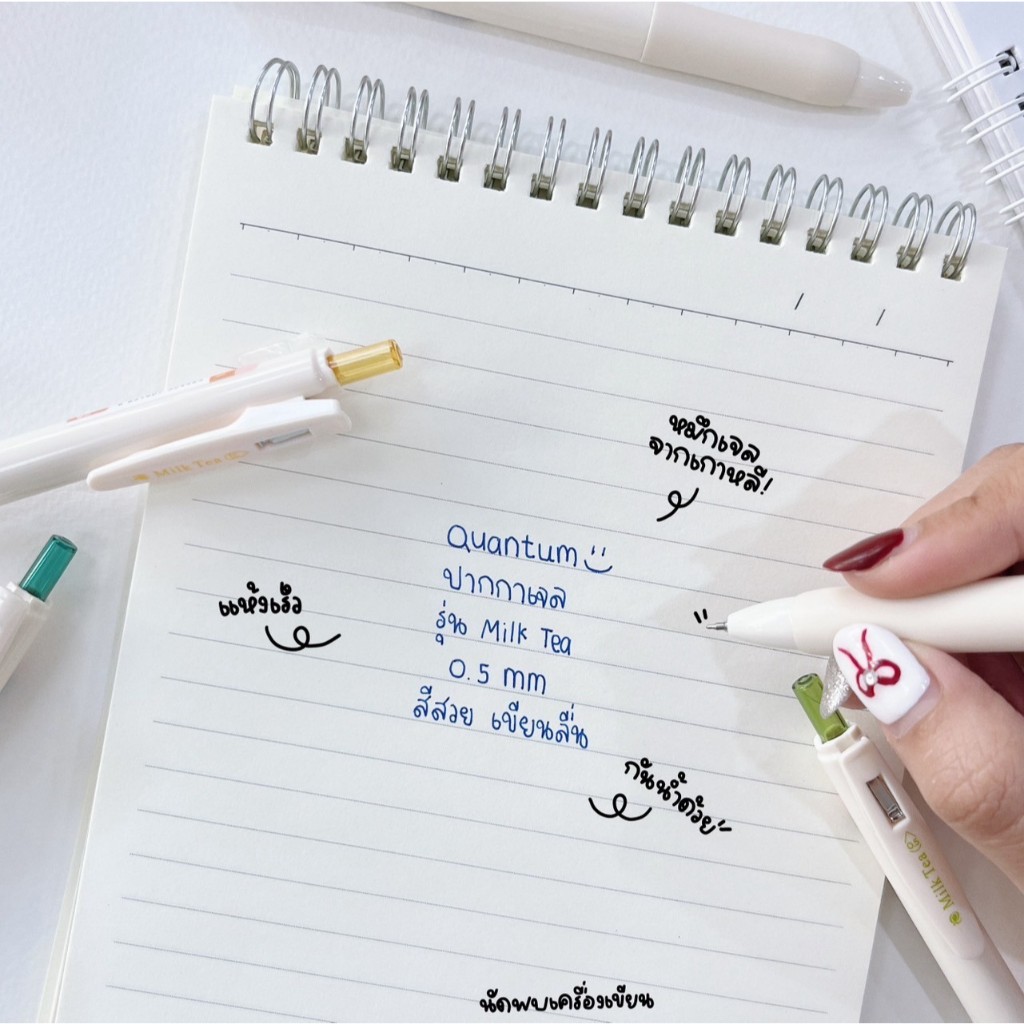 หมึกเจล
จากเกาหลี!
Quantum
ปากกาเจล
รุ่น Milk Tea
0.5 mm
สีสวย เขียนลื่น
แห้งเร็ว
กันน้ำด้วย
Milk Tea
Milk Tea
นัดพบเครื่องเขียน